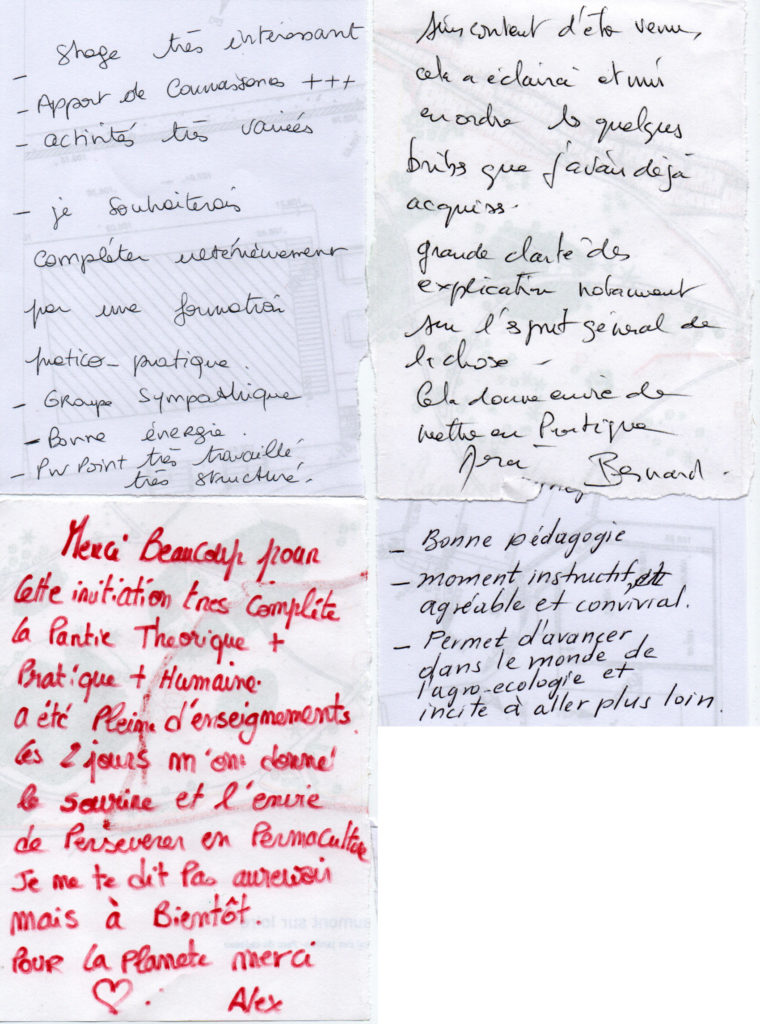 - Stage très intéressant
- Apport de Connaissances +++
- activités très variées
- je souhaiterais
compléter ultérieurement
par une formation
pratico-pratique.
- Groupe Sympathique
- Bonne énergie.
- Pw Point très travaillé
très structuré.
Suis content d'être venu,
cela a éclairci et mis
en ordre les quelques
bribes que j'avais déjà
acquises.
grande clarté des
explication notamment
sur l'esprit général de
la chose -
Cela donne envie de
mettre en Pratique
Bernard.
Merci Beaucoup pour
Cette initiation tres Complète
la Partie Theorique +
Pratique + Humaine.
a été Pleine d'enseignements.
Ces 2 jours m'ont donné
le sourire et l'envie
de Perseverer en Permaculture
Je ne te dit Pas aurevoir
mais à Bientôt.
POUR la Planete merci
♡. Alex
- Bonne pédagogie
- moment instructif,
agréable et convivial.
- Permet d'avancer
dans le monde de
l'agro-ecologie et
incite à aller plus loin.